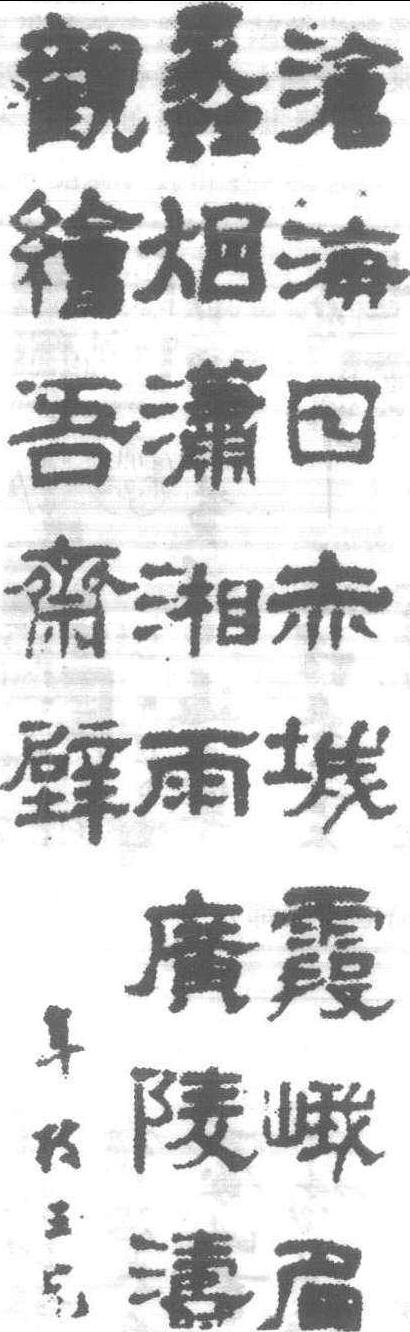 滄海日赤城霞峨眉
蠡烟瀟湘雨廣陵濤
觀繪吾齋壁